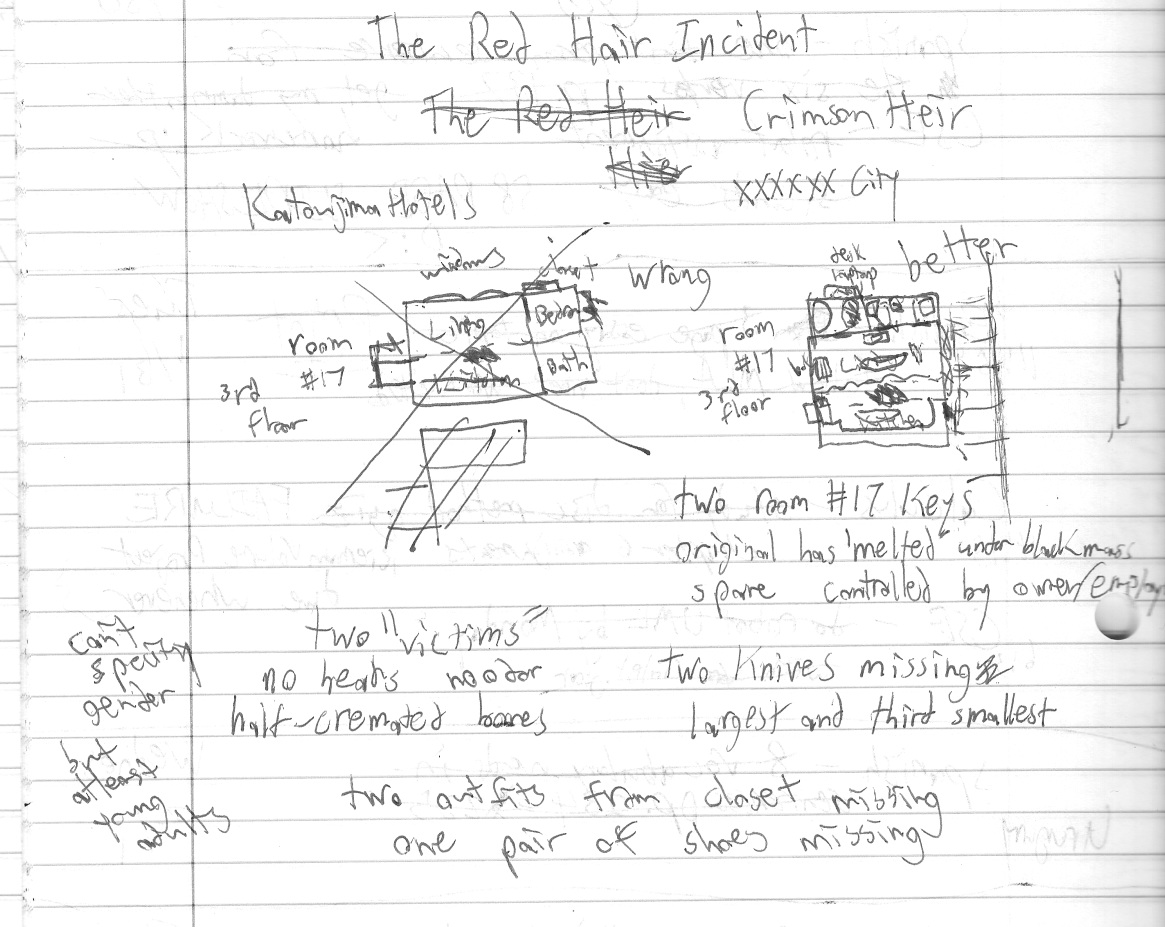 The Red Hair Incident
The Red Heir Crimson Heir
XXXXXX City
Katoujima Hotels
windows
closet
wrong
desk
laptop
better
Living
Bedroom
Bath
room
#17
3rd
floor
room
#17
3rd
floor
Kitchen
two room #17 Keys
original has "melted" under black mass
spare controlled by owner/employ
can't
specify
gender
two "victims"
no heads no odor
half-cremated bones
two Knives missing
largest and third smallest
but
atleast
young
adults
two outfits from closet missing
one pair of shoes missing